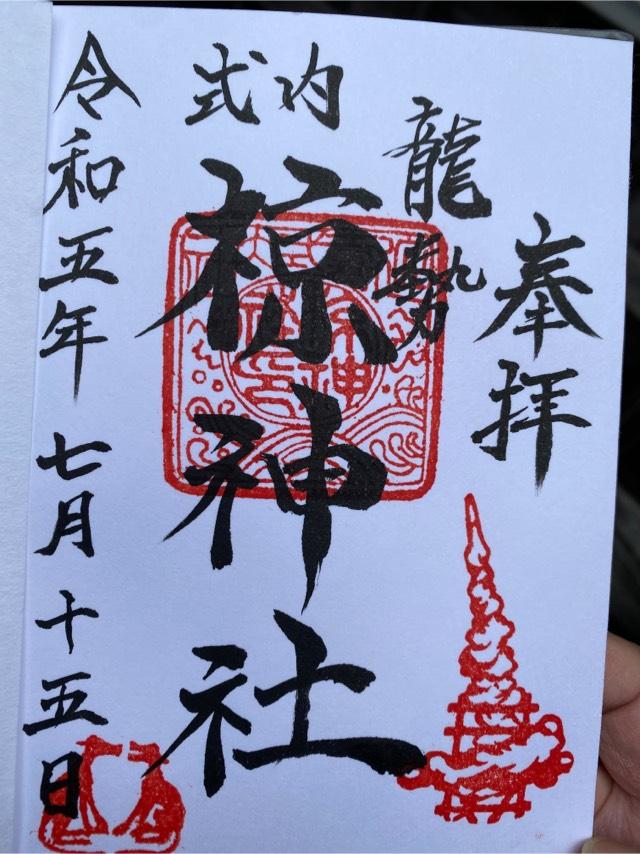 奉拝
龍勢
式内
椋神社
令和五年七月十五日